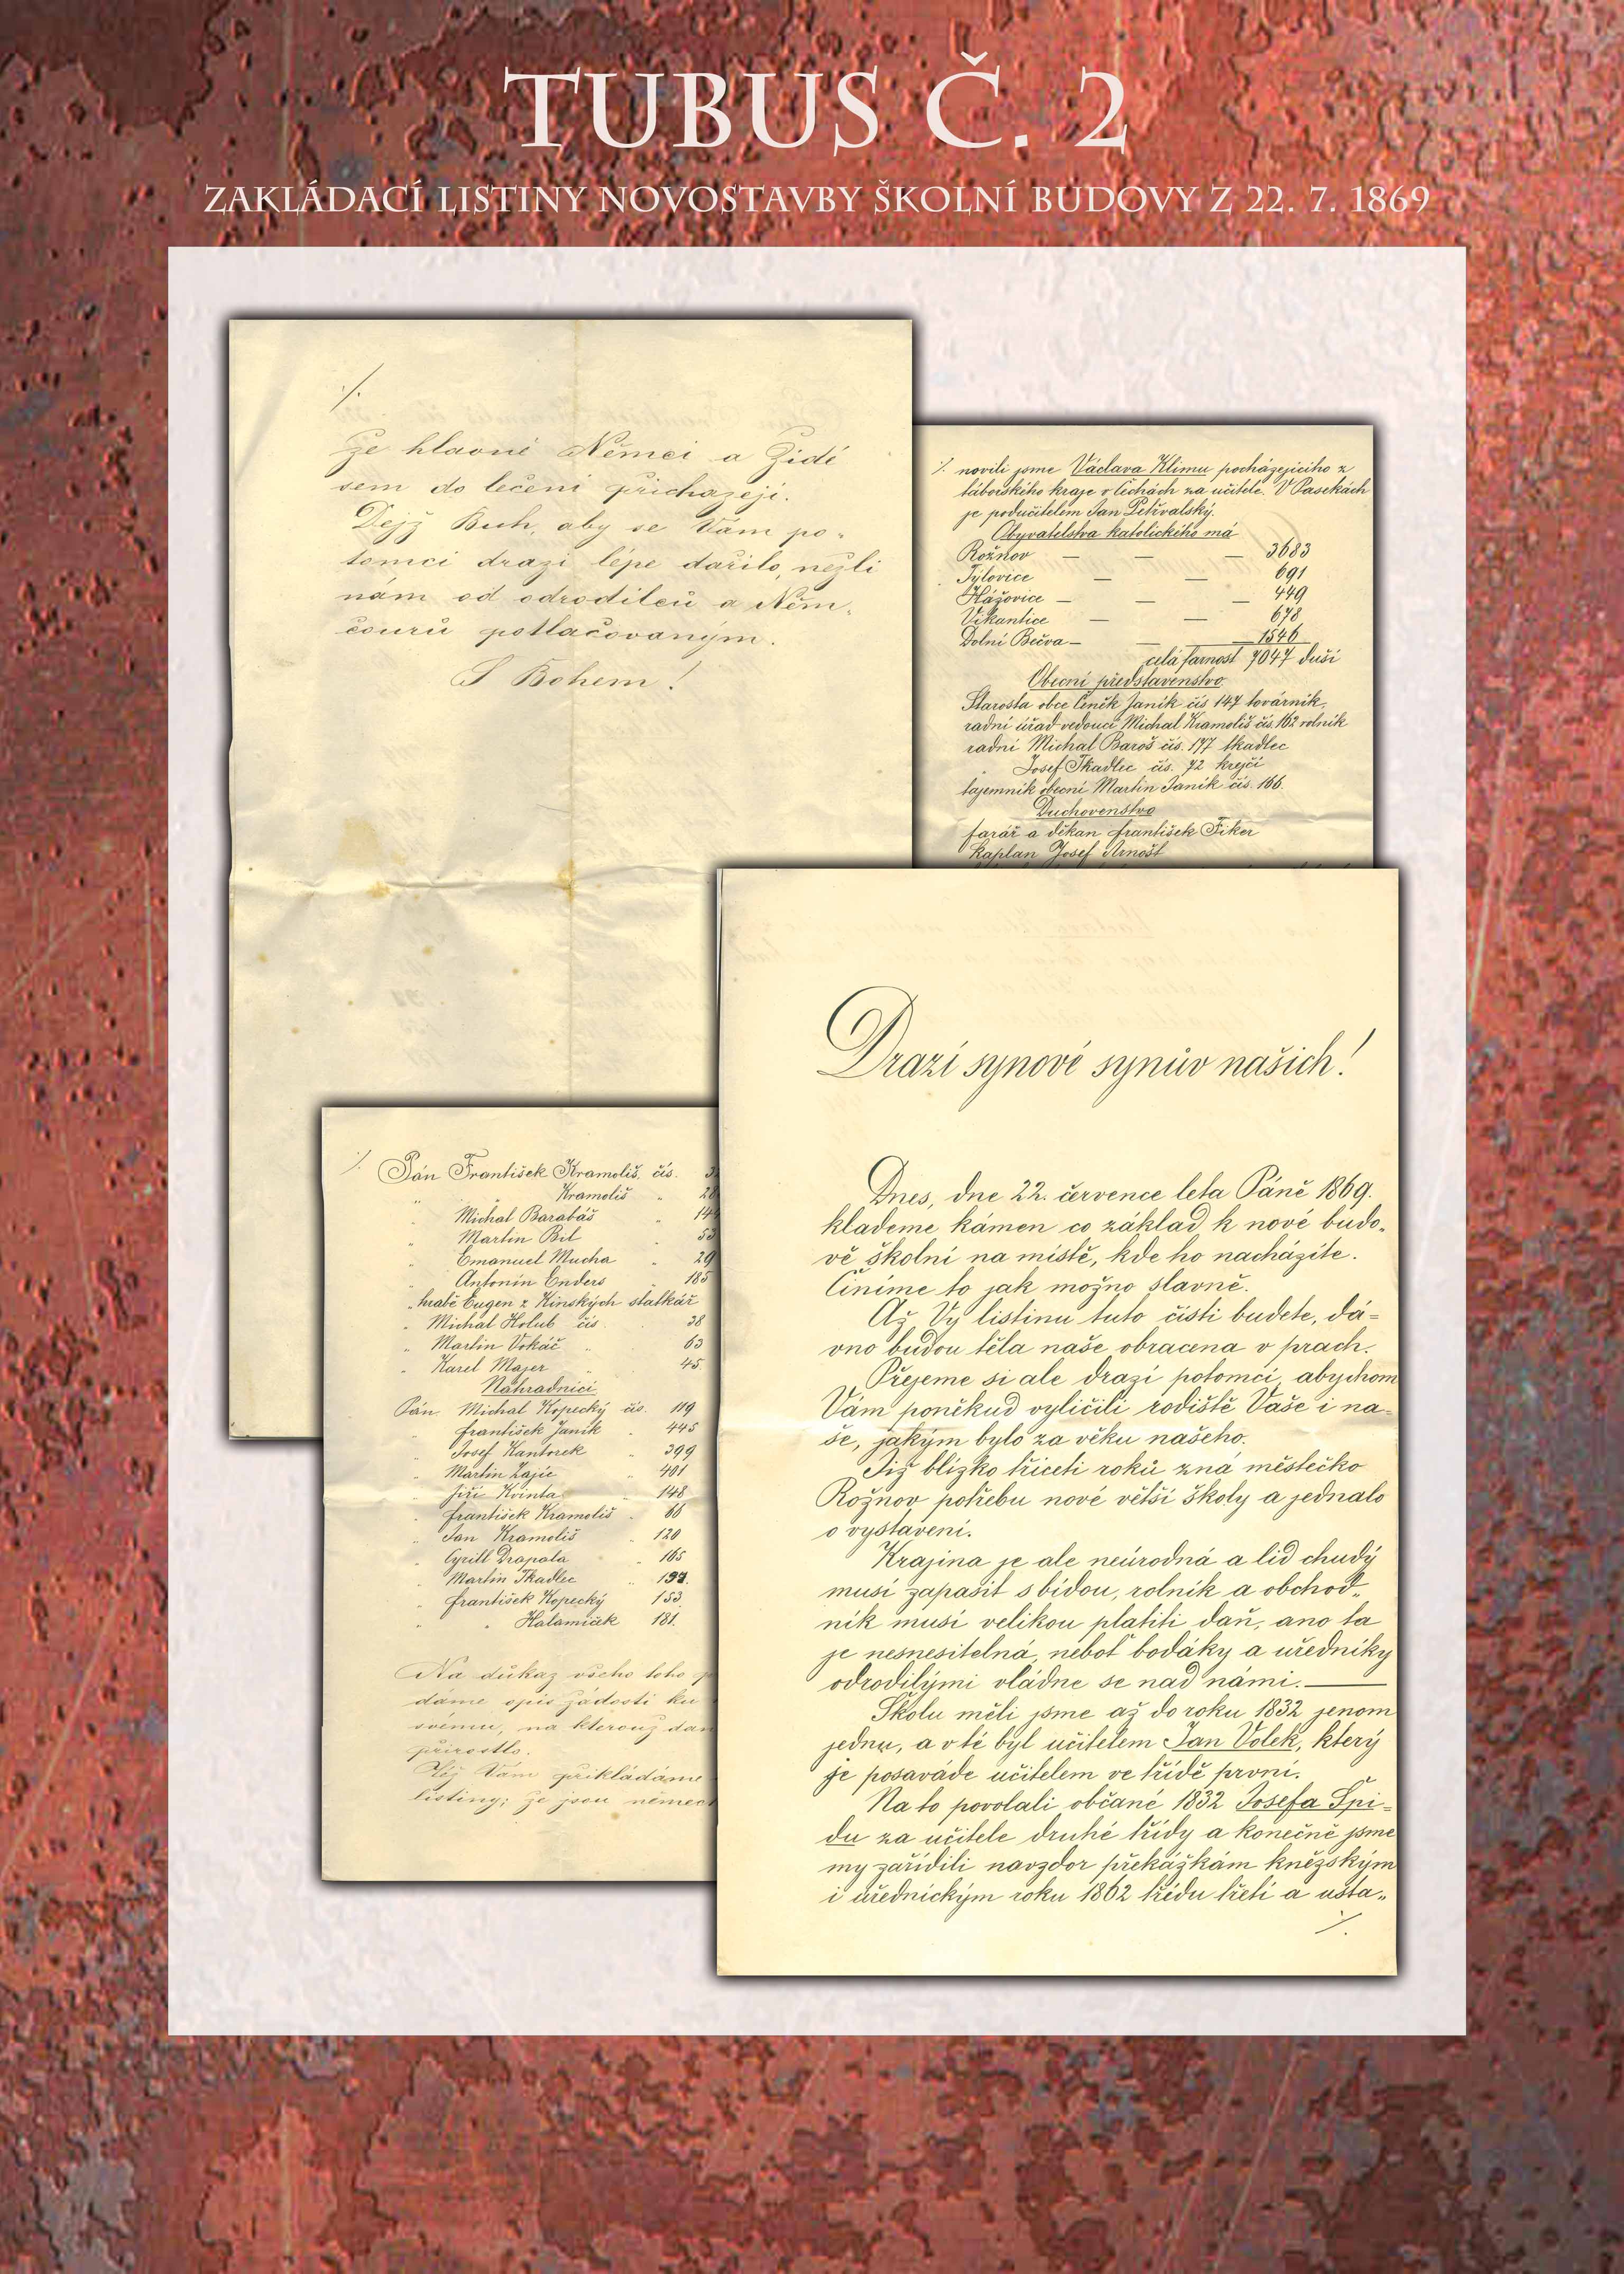 TUBUS Č. 2
ZAKLÁDACÍ LISTINY NOVOSTAVBY ŠKOLNÍ BUDOVY Z 22. 7. 1869
./.
že hlavně Němci a Židé
sem do lečení přicházejí.
Dejž Buh, aby se Vám po-
tomci drazí lépe dařilo, nežli
nám od odrodilců a Něm-
čourů potlačovaným.
S Bohem!
./. novili jsme Václava Klimu pocházejícího z
táborského kraje v Čechách za učitele. V Pasekách
je podučitelem Jan Petřvalský.
Obyvatelstva katolického má
Rožnov — — — 3683
Tylovice — — 691
Hážovice — — — 449
Vikantice — — 678
Dolní Bečva — — 1546
celá farnost 7047 duší
Obecní představenstvo
Starosta obce Čeněk Janík čís 147 továrník,
radní úřad vedoucí Michal Kramoliš čís. 162 rolník
radní Michal Baroš čís. 177 tkadlec
" Josef Tkadlec čís. 72 krejčí
tajemník obecní Martin Janík čís. 166.
Duchovenstvo
farář a děkan František Fiker
Kaplan Josef Arnošt
./. Pán František Kramoliš čís. 3
" Kramoliš " 28
" Michal Barabáš " 149
" Martin Bil " 53
" Emanuel Mucha " 29
" Antonín Enders " 185
" hrabě Eugen z Kinských statkář
" Michal Holub čís. 38
" Martin Vokáč " 63
" Karel Majer " 45
Náhradníci
Pán Michal Kopecký čís. 119
" František Janík " 445
" Josef Kantorek " 399
" Martin Zajíc " 401
" Jiří Kvinta " 148
" František Kramoliš " 66
" Jan Kramoliš " 120
" Cyrill Drapala " 165
" Martin Tkadlec "
" František Kopecký 153.
" " Halamíček 181.
Na důkaz všeho toho
dáme opis žádosti ku
svému, na kterouž dan
přirostlo.
Též Vám přikládáme
listiny; že jsou německ
Drazí synové synův našich!
Dnes, dne 22. července leta Páně 1869.
klademe kámen co základ k nové budo-
vě školní na místě, kde ho nacházíte.
Činíme to jak možno slavně.
Až Vy listinu tuto čísti budete, dá-
vno budou těla naše obracena v prach.
Přejeme si ale drazí potomci, abychom
Vám poněkud vylíčili rodiště Vaše i na-
še, jakým bylo za věku našeho.
Již blízko třiceti roků zná městečko
Rožnov potřebu nové větší školy a jednalo
o vystavení.
Krajina je ale neúrodná a lid chudý
musí zápasit s bídou, rolník a obchod-
ník musí velikou platiti daň, ano ta
je nesnesitelná, neboť bodáky a úředníky
odrodilými vládne se nad námi. —
Školu měli jsme až do roku 1832 jenom
jednu, a v té byl učitelem Jan Volek, který
je posaváde učitelem ve třídě první.
Na to povolali občané 1832 Josefa Špi-
du za učitele druhé třídy a konečně jsme
my zařídili navzdor překážkám kněžským
i úřednickým roku 1862 třídu třetí a usta-
./.